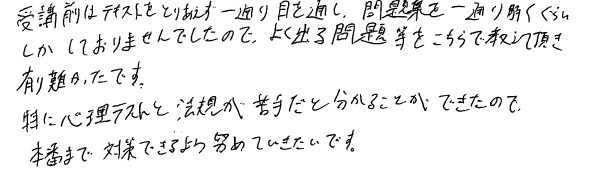 受講前はテキストをとりあえず一通り目を通し、問題集を一通り解くぐらい
しかしておりませんでしたので、よく出る問題等をこちらで教えて頂き
有難かったです。
特に心理テストと法規が苦手だと分かることができたので、
本番まで対策できるよう努めていきたいです。